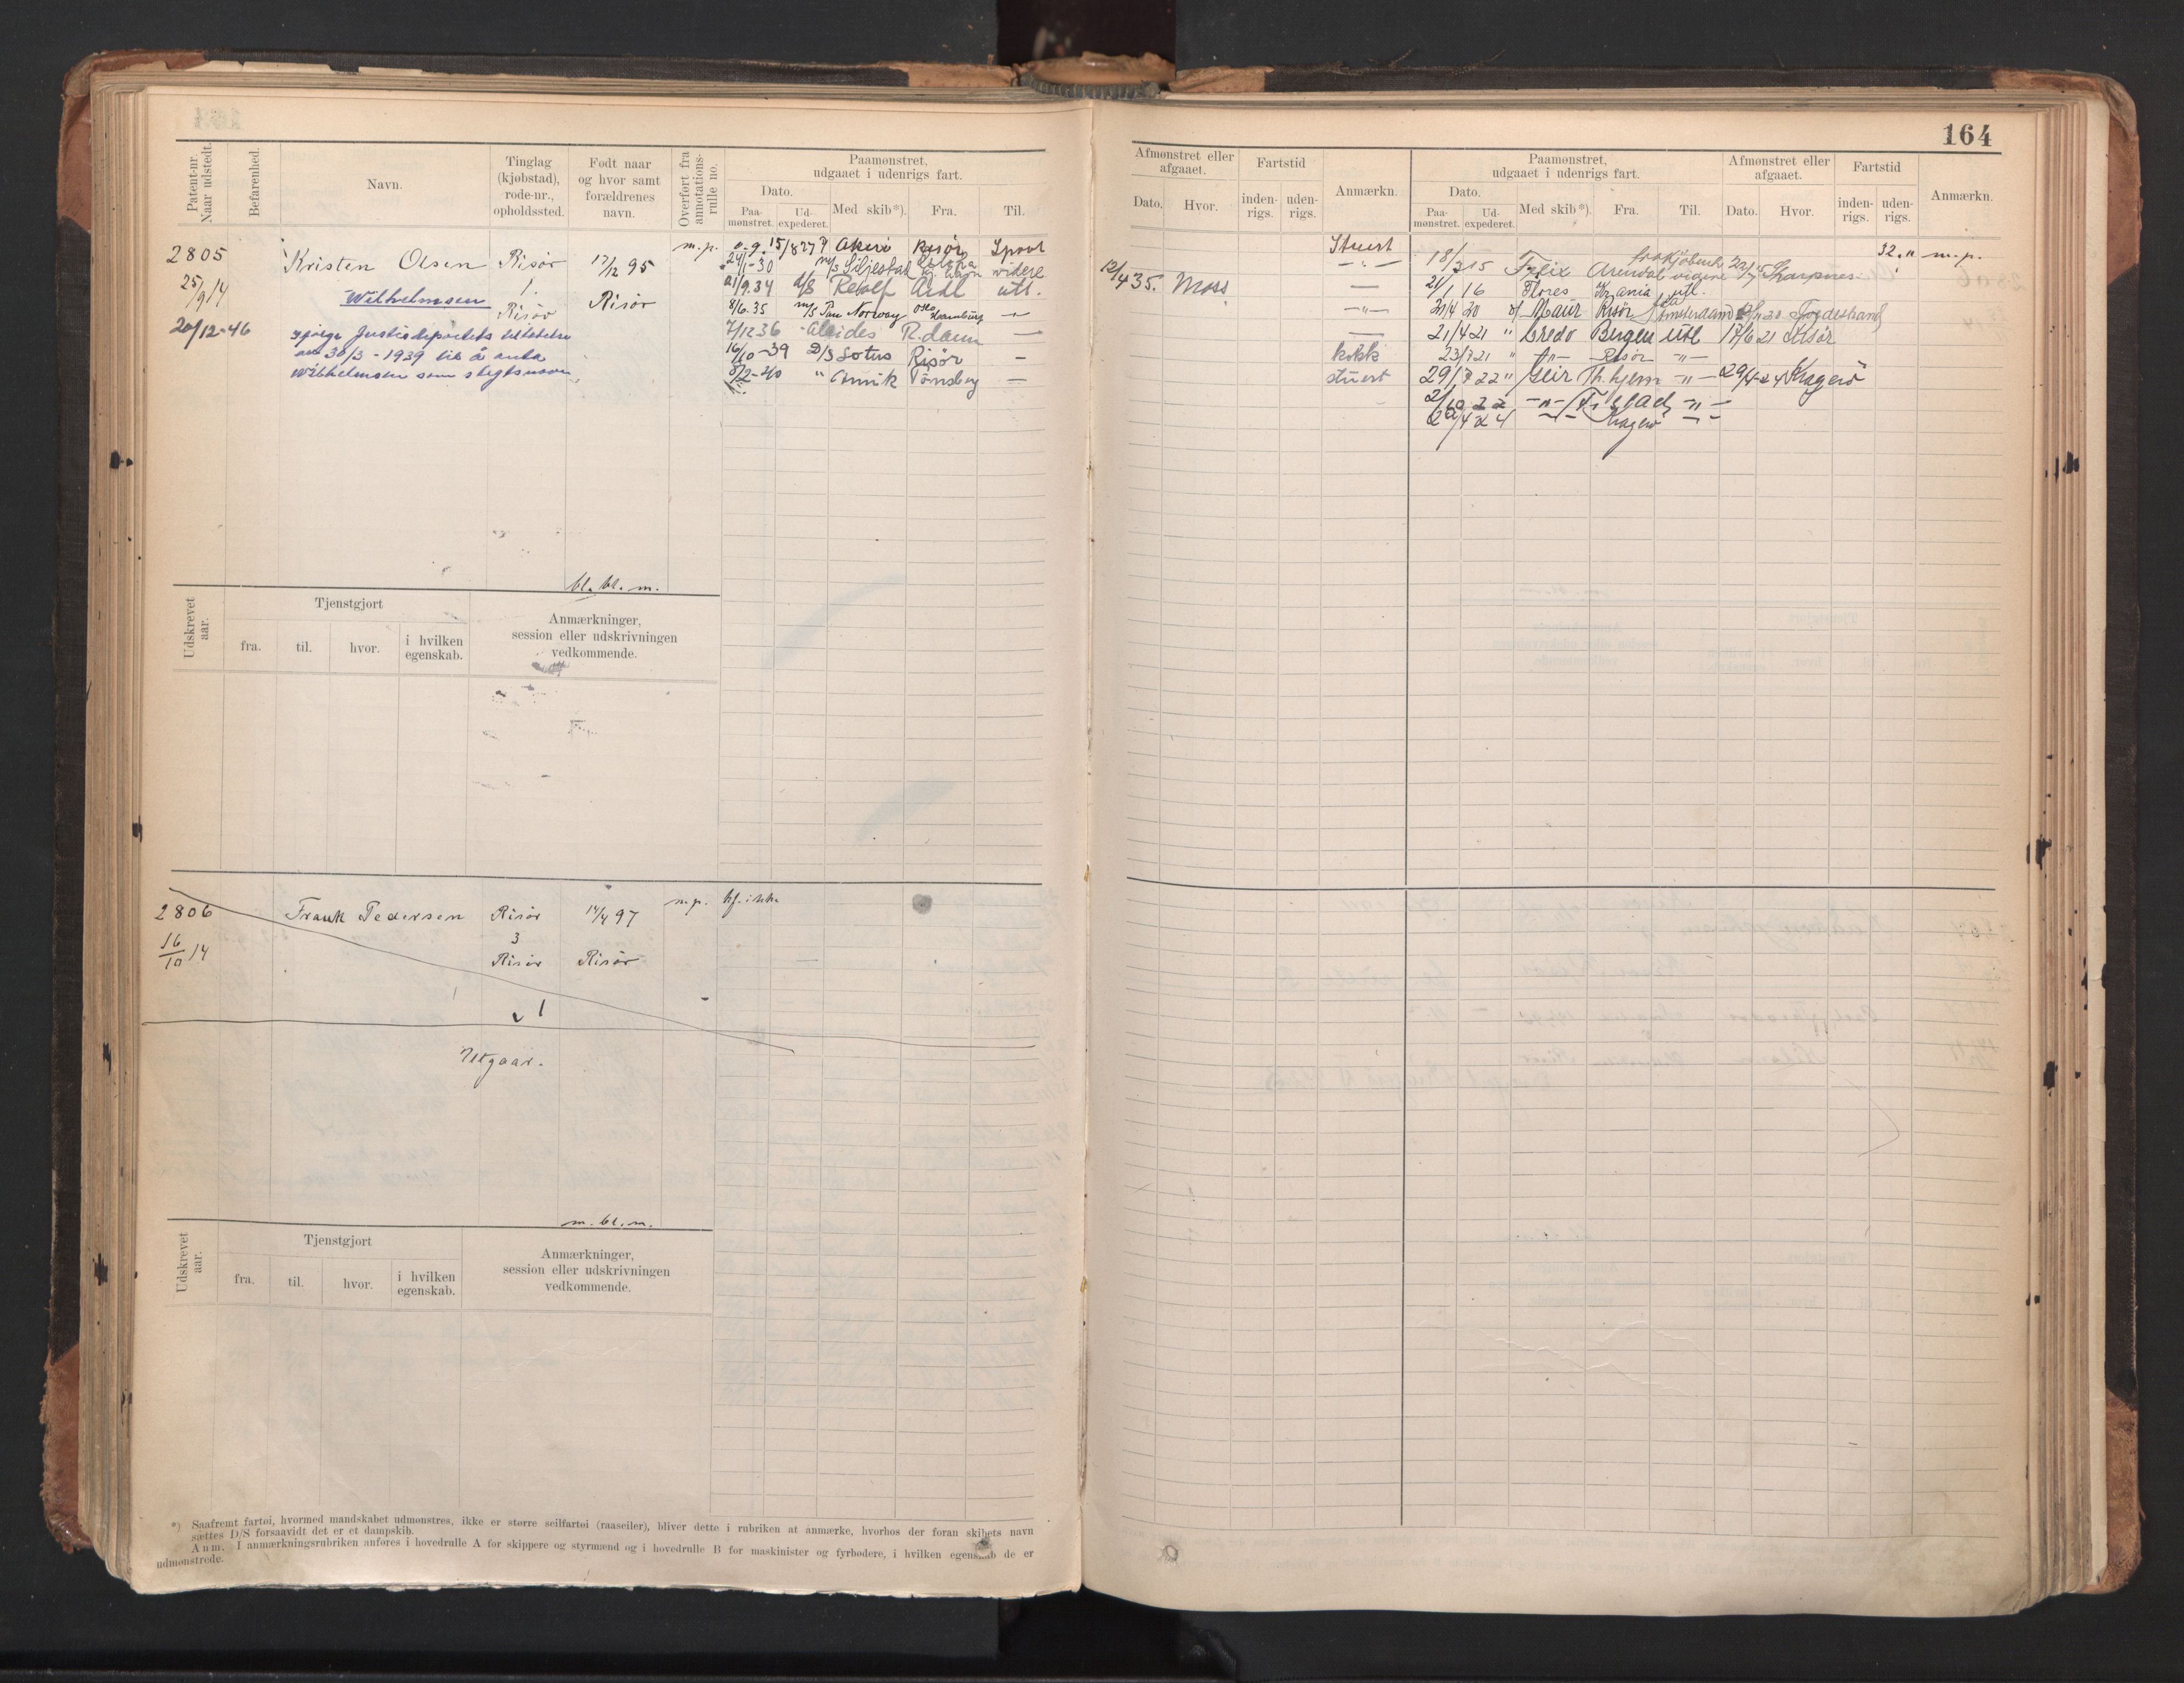 164
Patent-nr. Naar udstedt.
Befarenhed.
Navn.
Tinglag (kjøbstad), rode-nr., opholdssted.
Født naar og hvor samt forældrenes navn.
Overført fra annotations-rulle no.
Paamønstret, udgaaet i udenrigs fart.
Dato.
Paa-mønstret.
Ud-expederet.
Med skib*).
Fra.
Til.
2805
Kristen Olsen
Risör
17/12 95
m.p.
25/9 14
1.
Wilhelmsen
Risör
Risör
20/12-46
ifölge Justisdepartets tillatelse
av 30/3-1939 til å anta
Wilhelmsen som slegtsnavn
15/8 27
Risör
24/1-30 m/s Siljestad videre
21/9.34 d/s Rolf Ardl utl.
8/6.35 m/s Pan Norway Oslo Hamburg
7/12 36 Alcides R.dam
16/10-39 D/S Sotus Risör —
8/2-40 " Annik Tønsberg —
bl. bl. m.
Udskrevet aar.
Tjenstgjort
fra.
til.
hvor.
i hvilken egenskab.
Anmærkninger, session eller udskrivningen vedkommende.
2806
Frank Pedersen
Risör
14/4 97
m.p.
16/10 14
3
Risör
Risör
Utgaar.
m. bl. m.
Udskrevet aar.
Tjenstgjort
fra.
til.
hvor.
i hvilken egenskab.
Anmærkninger, session eller udskrivningen vedkommende.
*) Saafremt fartøi, hvormed mandskabet udmønstres, ikke er større seilfartøi (raaseiler), bliver dette i rubriken at anmærke, hvorhos der foran skibets navn
sættes D/S forsaavidt det er et dampskib.
Anm. I anmærkningsrubriken anføres i hovedrulle A for skippere og styrmænd og i hovedrulle B for maskinister og fyrbødere, i hvilken egenskab de er
udmønstrede.
Afmønstret eller afgaaet.
Dato.
Hvor.
Fartstid
inden-rigs.
uden-rigs.
Anmærkn.
Paamønstret, udgaaet i udenrigs fart.
Dato.
Paa-mønstret.
Ud-expederet.
Med skib*).
Fra.
Til.
Afmønstret eller afgaaet.
Dato.
Hvor.
Fartstid
inden-rigs.
uden-rigs.
Anmærkn.
Stuert
12/4 35. Moss
—"—
—
—"—
—
kokk
stuert
18/3 15 Felix Arendal
32. " m.p.
21/1 16 Flores Kr.ania utl.
20/4 20 Maur Risör Amsterdam Tvedestrand
21/4 21 " Credo Bergen utl 17/6 21 Risör
23/7 21 " —"— Risör —"—
29/7 22 " Geir Th.hjem —"— 29/4-24 Kragerö
2/10 22 —"— Fr.stad —"—
29/4 24 —"— Kragerö —"—